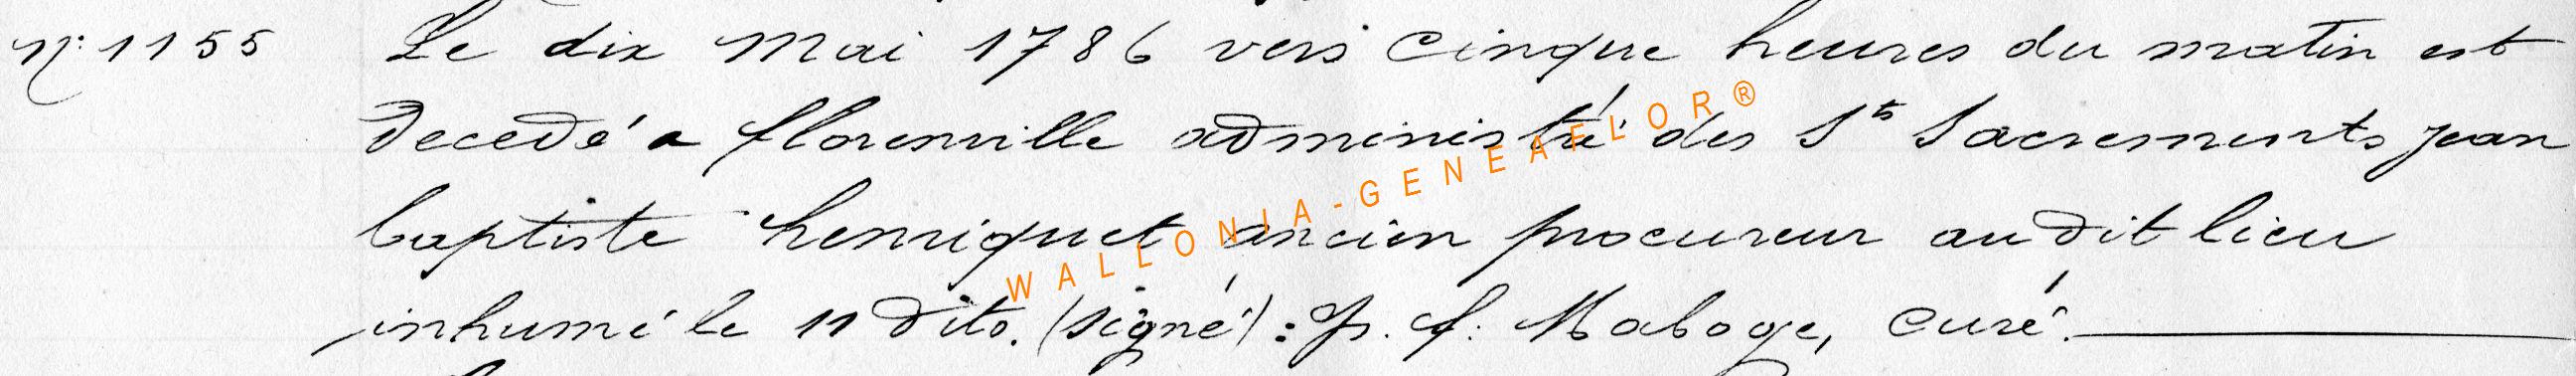 N° 1155 Le dix Mai 1786 vers cinque heures du matin est
decedé a florenville administré des Sts Sacrements jean
baptiste henriquet ancien procureur au dit lieu
inhumé le 11 dito. (signé) : p. f. Maboge, curé.
WALLONIA-GENEAFLOR®